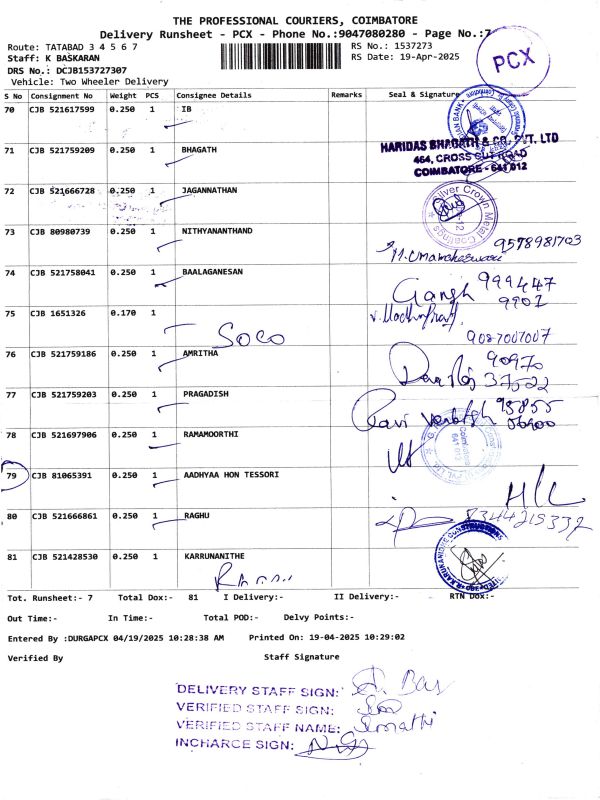 THE PROFESSIONAL COURIERS, COIMBATORE
Delivery Runsheet - PCX - Phone No.:9047080280 - Page No.:7
Route: TATABAD 3 4 5 6 7 RS No.: 1537273
Staff: K BASKARAN RS Date: 19-Apr-2025
DRS No.: DCJB153727307
Vehicle: Two Wheeler Delivery
PCX
S No Consignment No Weight PCS Consignee Details Remarks Seal & Signature
70 CJB 521617599 0.250 1 IB
71 CJB 521759209 0.250 1 BHAGATH
HARIDAS BHAGATH & CO. PVT. LTD
464, CROSS CUT ROAD
COIMBATORE - 641 012
72 CJB 521666728 0.250 1 JAGANNATHAN
Silver Crown Metal Coatings
73 CJB 80980739 0.250 1 NITHYANANTHAND
9578981703
74 CJB 521758041 0.250 1 BAALAGANESAN
Gansh 999447
9901
75 CJB 1651326 0.170 1
SOCO
9087007007
76 CJB 521759186 0.250 1 AMRITHA
90970
37522
77 CJB 521759203 0.250 1 PRAGADISH
Ravi Venktsh 95855
78 CJB 521697906 0.250 1 RAMAMOORTHI
79 CJB 81065391 0.250 1 AADHYAA HON TESSORI
80 CJB 521666861 0.250 1 RAGHU
8344215337
81 CJB 521428530 0.250 1 KARRUNANITHE
Tot. Runsheet:- 7 Total Dox:- 81 I Delivery:- II Delivery:- RTN Dox:-
Out Time:- In Time:- Total POD:- Delvy Points:-
Entered By :DURGAPCX 04/19/2025 10:28:38 AM Printed On: 19-04-2025 10:29:02
Verified By Staff Signature
DELIVERY STAFF SIGN: Bas
VERIFIED STAFF SIGN:
VERIFIED STAFF NAME:
INCHARGE SIGN: